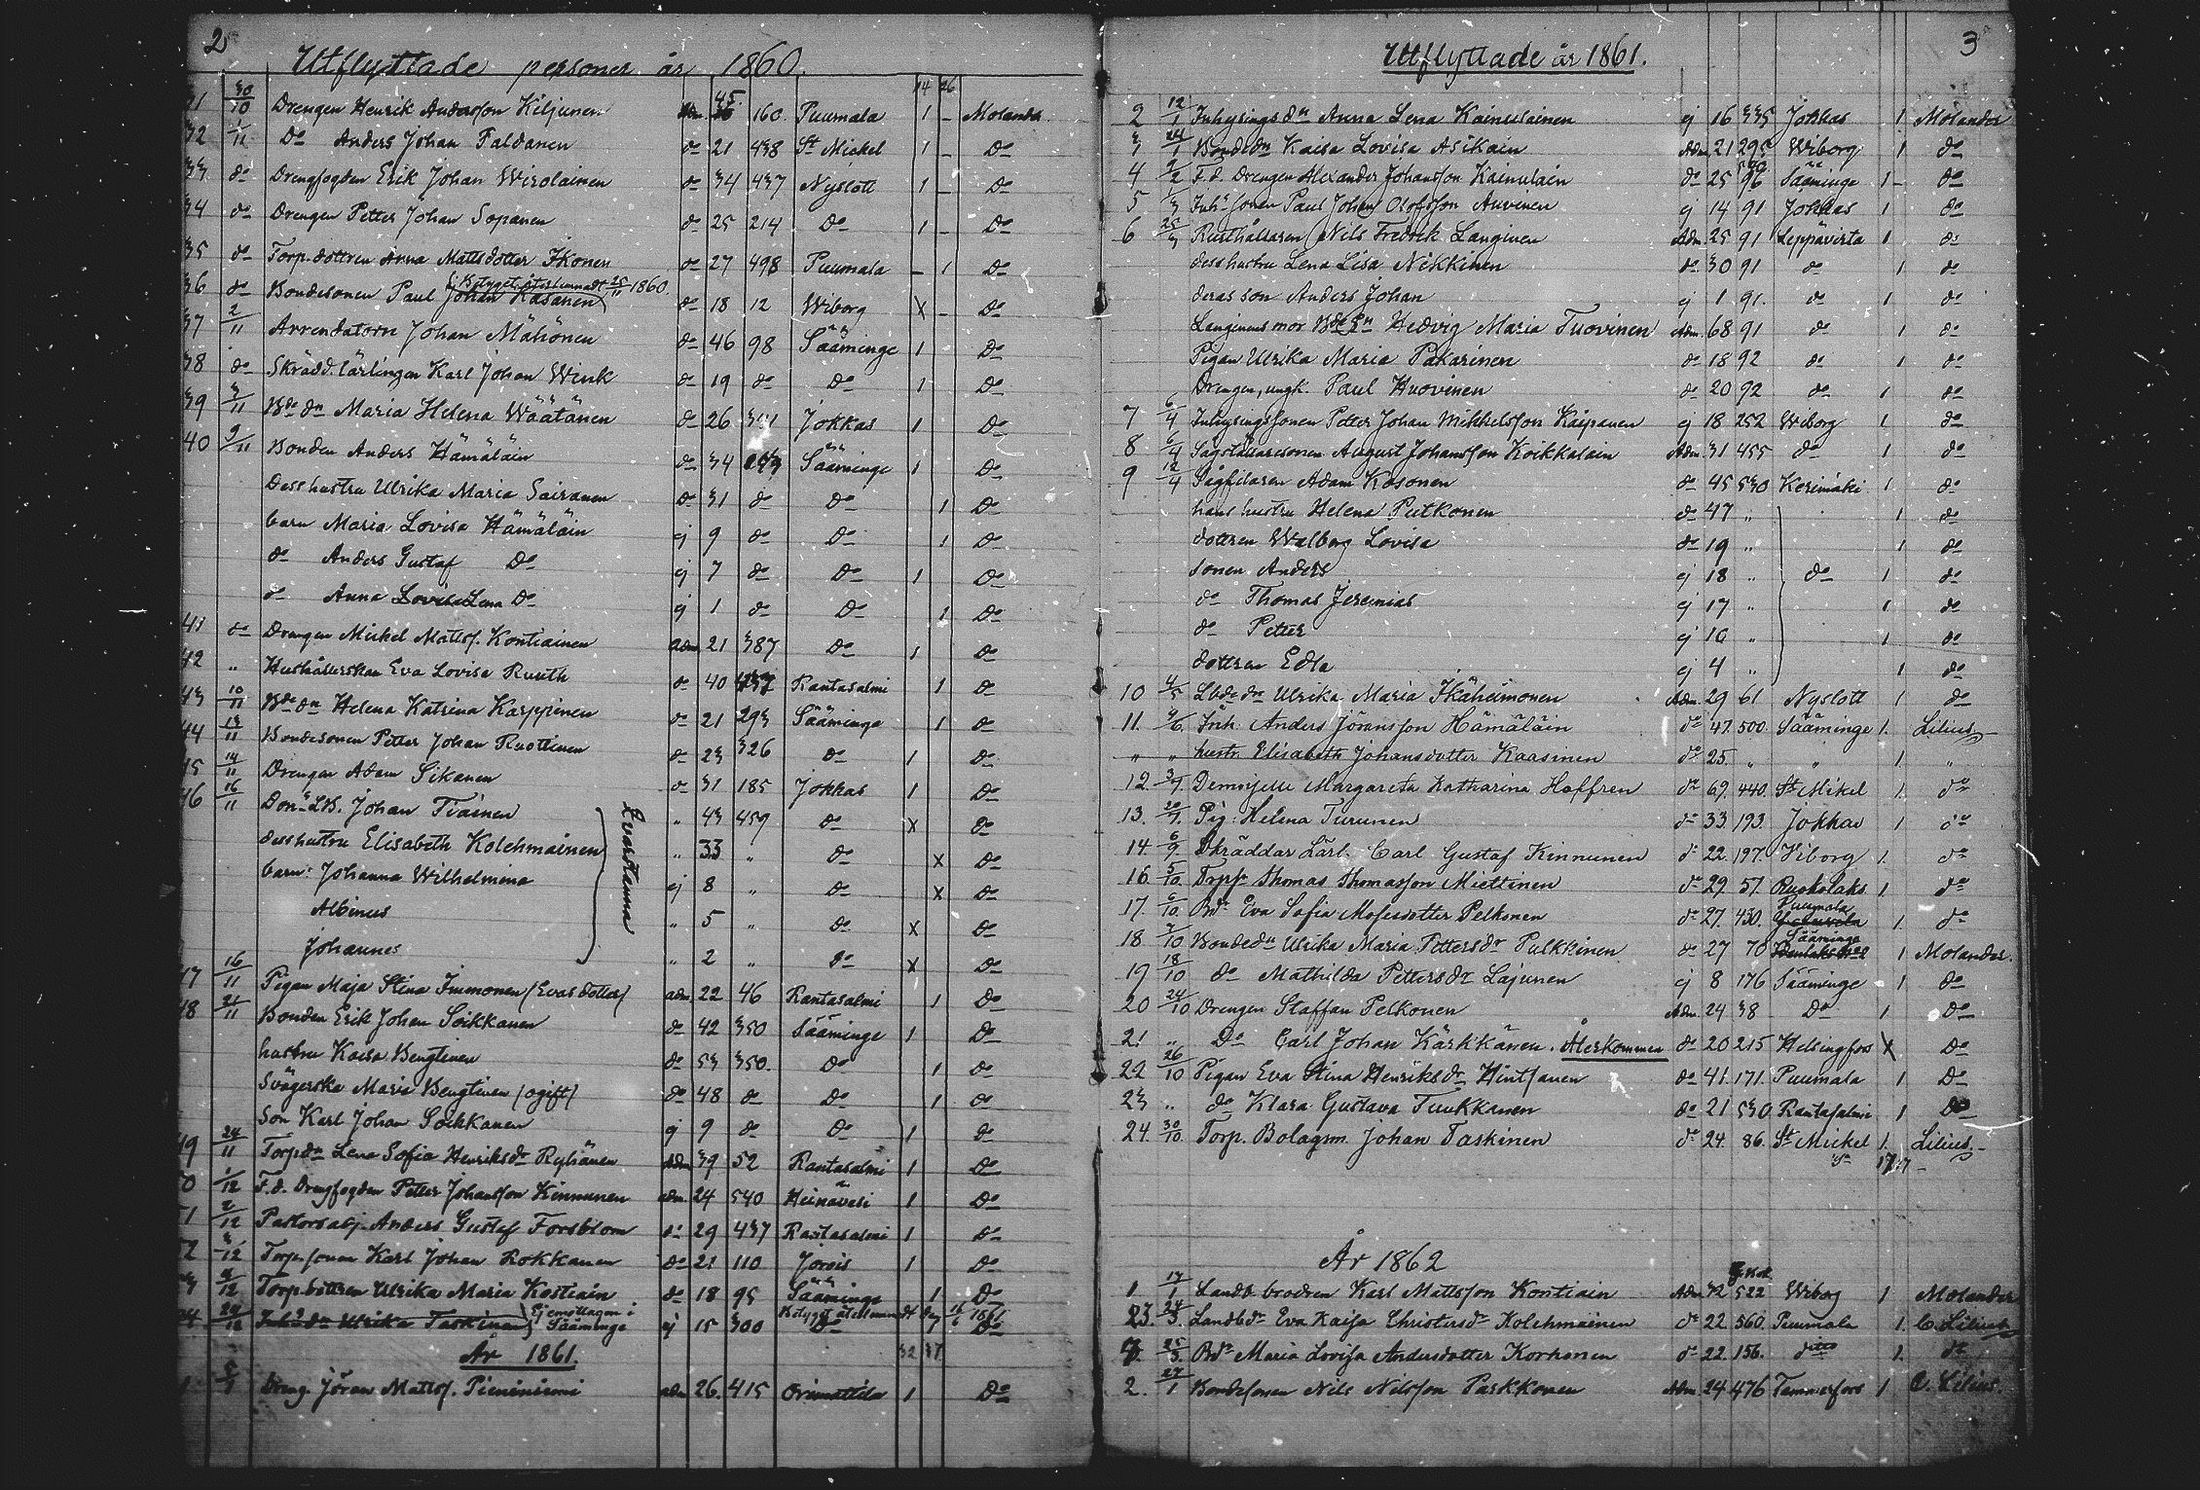 2
Utflyttade personer år 1860.
14 26
31 30/10 Drengen Henrik Andersson Kiljunen adm. 45. 160. Puumala 1 – Molander
32 1/11 Do Anders Johan Taldanen do 21 438 St Mickel 1 – Do
33 do Drengfogden Erik Johan Wirolainen do 34 437 Nyslott 1 – Do
34 do Drengen Petter Johan Sopanen do 25 214 Do 1 – Do
35 do Torp.dottren Anna Mattsdotter Ikonen do 27 498 Puumala – 1 Do
36 do Bondesonen Paul Johan Kasanen (Betyget återlemnadt 25/11 1860. do 18 12 Wiborg X – Do
37 2/11 Arrendatorn Johan Mähönen do 46 98 Sääminge 1 Do
38 do Skrädd.lärlingen Karl Johan Wink do 19 do Do 1 Do
39 3/11 Bde dn Maria Helena Wäätänen do 26 341 Jokkas 1 Do
40 9/11 Bonden Anders Hämäläin do 34 Sääminge 1 Do
Dess hustru Ulrika Maria Sairanen do 31 do Do 1 Do
barn Maria Lovisa Hämäläin ej 9 do Do 1 Do
do Anders Gustaf Do ej 7 do Do 1 Do
do Anna Lovisa Lena Do ej 1 do Do 1 Do
41 do Drengen Mickel Mattss. Kontiainen adm. 21 387 Do 1 Do
42 " Hushållerskan Eva Lovisa Ruuth do 40 437 Rantasalmi 1 do
43 10/11 Bde dn Helena Katrina Karppinen do 21 293 Sääminge 1 do
44 13/11 Bondesonen Petter Johan Ruottinen do 23 326 do 1 Do
45 14/11 Drengen Adam Sikanen do 31 185 Jokkas 1 Do
46 16/11 Johan Tiainen " 43 459 do X do
dess hustru Elisabeth Kolehmainen " 33 " do X Do
barn: Johanna Wilhelmina ej 8 " do X Do
Albinus " 5 " do X Do
Johannes " 2 " do X Do
Evarstenna
47 16/11 Pigan Maja Stina Immonen (Evas dotter) adm. 22 46 Rantasalmi 1 Do
48 24/11 Bonden Erik Johan Soikkanen do 42 350 Sääminge 1 Do
hustru Kaisa Bengtinen do 53 350. Do 1 do
Svägerska Maria Bengtinen (ogift) do 48 do Do 1 do
Son Karl Johan Soikkanen ej 9 do Do 1 do
49 24/11 Torp dn Lena Sofia Henriksdr Ryhänen Adm 39 52 Rantasalmi 1 Do
50 1/12 F.d. Drengfogden Petter Johansson Kinnunen adm. 24 540 Heinävesi 1 Do
51 2/12 Pastorsadj. Anders Gustaf Forsblom do 29 437 Rantasalmi 1 do
52 3/12 Torp.sonen Karl Johan Rokkanen do 21 110 Jorois 1 Do
53 4/12 Torp.dottren Ulrika Maria Kostiain do 18 95 Sääminge 1 Do
54 29/12 Inh.dn Ulrika Taskinen (Ej emottagen i Sääminge ej 15 300 Do 1 Do
32 37
År 1861.
1 Dreng Jöran Mattss. Pieniniemi adm 26. 415 Orimattila 1 Do
3
Utflyttade år 1861.
2 12/1 Inhysings dn Anna Lena Kainulainen ej 16 335 Jokkas 1 Molander
3 24/1 Bonde dn Kaisa Lovisa Asikain Adm 21 295 Wiborg 1 do
4 2/2 F.d. Drengen Alexander Johansson Kainulain do 25 96 Sääminge 1 – do
5 1/3 Inhs sonen Paul Johan Olofsson Auvinen ej 14 91 Jokkas 1 do
6 25/3 Rusthållaren Nils Fredrik Langinen Adm. 25 91 Leppävirta 1 do
dess hustru Lena Lisa Nikkinen do 30 91 do 1 do
deras son Anders Johan ej 1 91. do 1 do
Langinens mor Bde En Hedvig Maria Tuovinen Adm. 68 91 do 1 do
Pigan Ulrika Maria Pakarinen do 18 92 do 1 do
Drengen, ungk. Paul Huovinen do 20 92 do 1 do
7 6/4 Inhysingssonen Petter Johan Mikkelsson Kaipanen ej 18 252 Wiborg 1 do
8 6/4 August Johansson Koikkalain Adm. 31 455 do 1 do
9 12/4 Sågfilaren Adam Kosonen do 45 530 Kerimäki 1 do
hans hustru Helena Putkonen do 47 " 1 do
dottren Walborg Lovisa do 19 " 1 do
sonen Anders ej 18 " do 1 do
do Thomas Jeremias ej 17 " 1 do
do Petter ej 10 " 1 do
dottren Edla ej 4 " 1 do
10 4/5 Lbde dn Ulrika Maria Ikäheimonen Adm. 29 61 Nyslott 1 do
11. 9/6. Inh. Anders Jöransson Hämäläin do 47. 500. Sääminge 1. Lilius
" " hustr. Elisabeth Johansdotter Kaasinen do 25. " " 1 "
12. 3/7. Demoiselle Margareta Katharina Hoffren do 69. 440. St Mikel 1. do
13. 20/7. Pig. Helena Turunen do 33. 193. Jokkas 1 do
14. 6/9 Skräddar Lärl. Carl Gustaf Kinnunen do 22. 197. Viborg 1. do
16. 5/10. Torps. Thomas Thomasson Miettinen do 29. 57. Ruskolaks 1. do
17. 6/10 Bdr Eva Sofia Mosesdotter Pelkonen do 27. 430. Puumala 1. do
18. 7/10 Bondedn Ulrika Maria Pettersdr Pulkkinen do 27 70 Sääminge 1 Molander.
19 18/10 do Mathilda Pettersdr Lajunen ej 8 176 Sääminge 1 do
20 24/10 Drengen Staffan Pelkonen Adm. 24 38 Do 1 Do
21 " Do Carl Johan Kärkkänen. Återkommen do 20 215 Helsingfors X Do
22 26/10 Pigan Eva Stina Henriksdr Hintsanen do 41. 171. Puumala 1 Do
23 " do Klara Gustava Tuukkanen do 21 530 Rantasalmi 1 Do
24. 30/10. Torp. Bolagsm Johan Taskinen do 24. 86. St Mickel 1. Lilius
17 17
År 1862
1 17/1 Landb. brodren Karl Mattsson Kontiain Adm 32 522 Wiborg 1 Molander
23. 24/3. Landbdr Eva Kaisa Christersdr Kolehmainen do 22 560. Puumala 1. C. Lilius
25/3. Bdr Maria Lovisa Andersdotter Korhonen do 22. 156. ditto 1. dt
2. 27/1 Bondesonen Nils Nilsson Parkkonen Adm. 24 476 Tammerfors 1 C. Lilius.